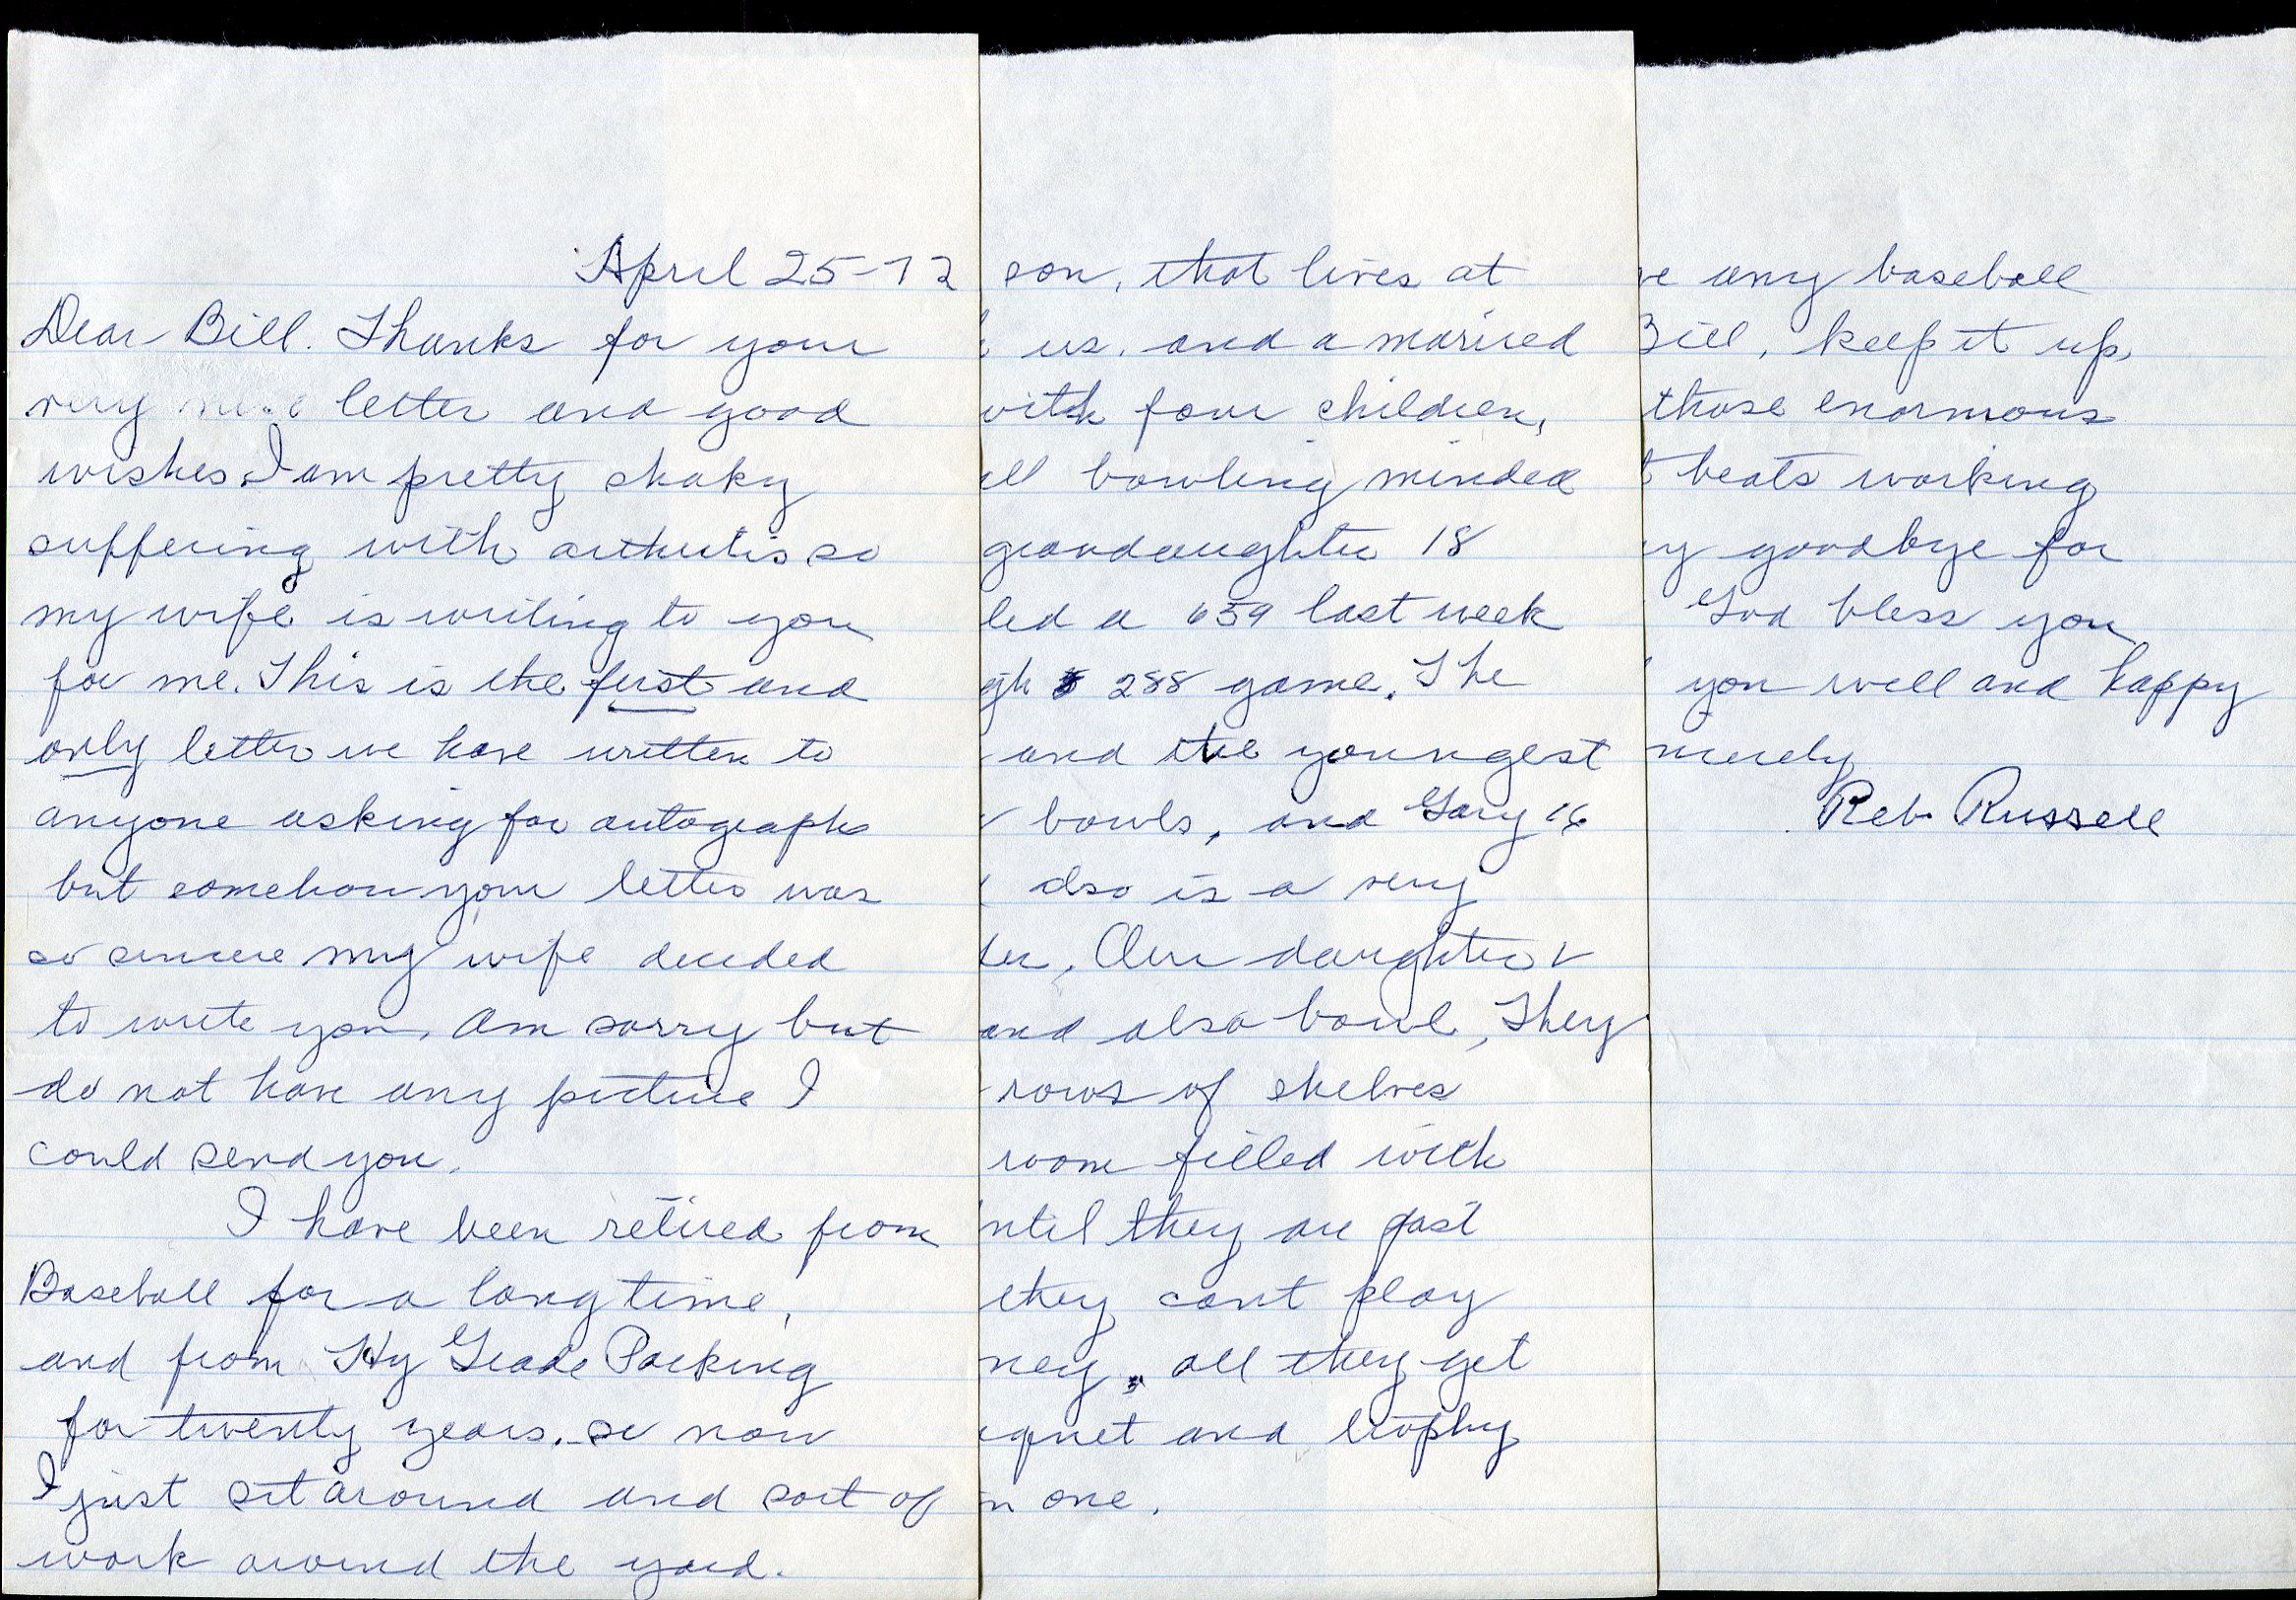 April 25-72
Dear Bill. Thanks for your
very nice letter and good
wishes I am pretty shaky
suffering with arthritis so
my wife is writing to you
for me. This is the first and
only letter we have written to
anyone asking for autograph
but somehow your letter was
so sincere my wife decided
to write you. Am sorry but
do not have any picture I
could send you.
I have been retired from
Baseball for a long time,
and from Hy Grade Packing
for twenty years. so now
I just sit around and sort of
work around the yard.
son, that lives at
us. and a married
with four children,
all bowling minded
grandaughter 18
led a 659 last week
gh 288 game. The
and the youngest
bowls, and Gary 16
also is a very
ler, Our daughter &
and also bowl, They
rows of shelves
room filled with
until they are past
they cant play
ney, all they get
quet and trophy
n one.
ve any baseball
Bill, keep it up,
those enormous
t beats working
ay goodbye for
God bless you
you well and happy
ncerely
Reb Russell